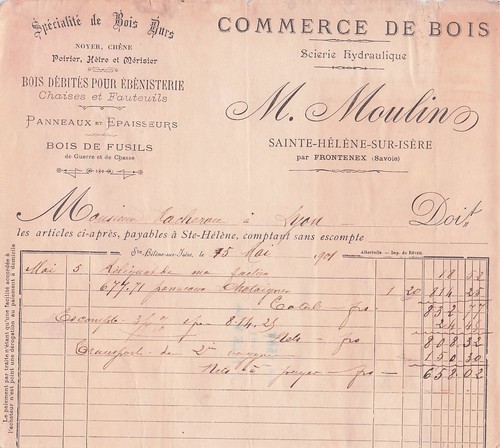 Spécialité de Bois Durs
NOYER, CHÊNE
Poirier, Hêtre et Mérisier
BOIS DÉBITÉS POUR ÉBÉNISTERIE
Chaises et Fauteuils
PANNEAUX ET EPAISSEURS
BOIS DE FUSILS
de Guerre et de Chasse
COMMERCE DE BOIS
Scierie Hydraulique
M. Moulin
SAINTE-HÉLÈNE-SUR-ISÈRE
par FRONTENEX (Savoie)
Monsieur à Lyon Doit
les articles ci-après, payables à Ste-Hélène, comptant sans escompte
Ste-Hélène-sur-Isère, le 15 Mai 1901
Albertville - Imp. du RÉVEIL
Mai 5 de ma 18 52
677.71 panneaux 1 20 814 25
Total frs 832 77
Escompte 3 p% s/ 814.25 24 45
Nets frs 808 32
Transports de 2 150 30
Nets à payer frs 658 02
Le paiement par traite n'étant qu'une facilité accordée à
l'acheteur n'est point une dérogation au paiement à domicile